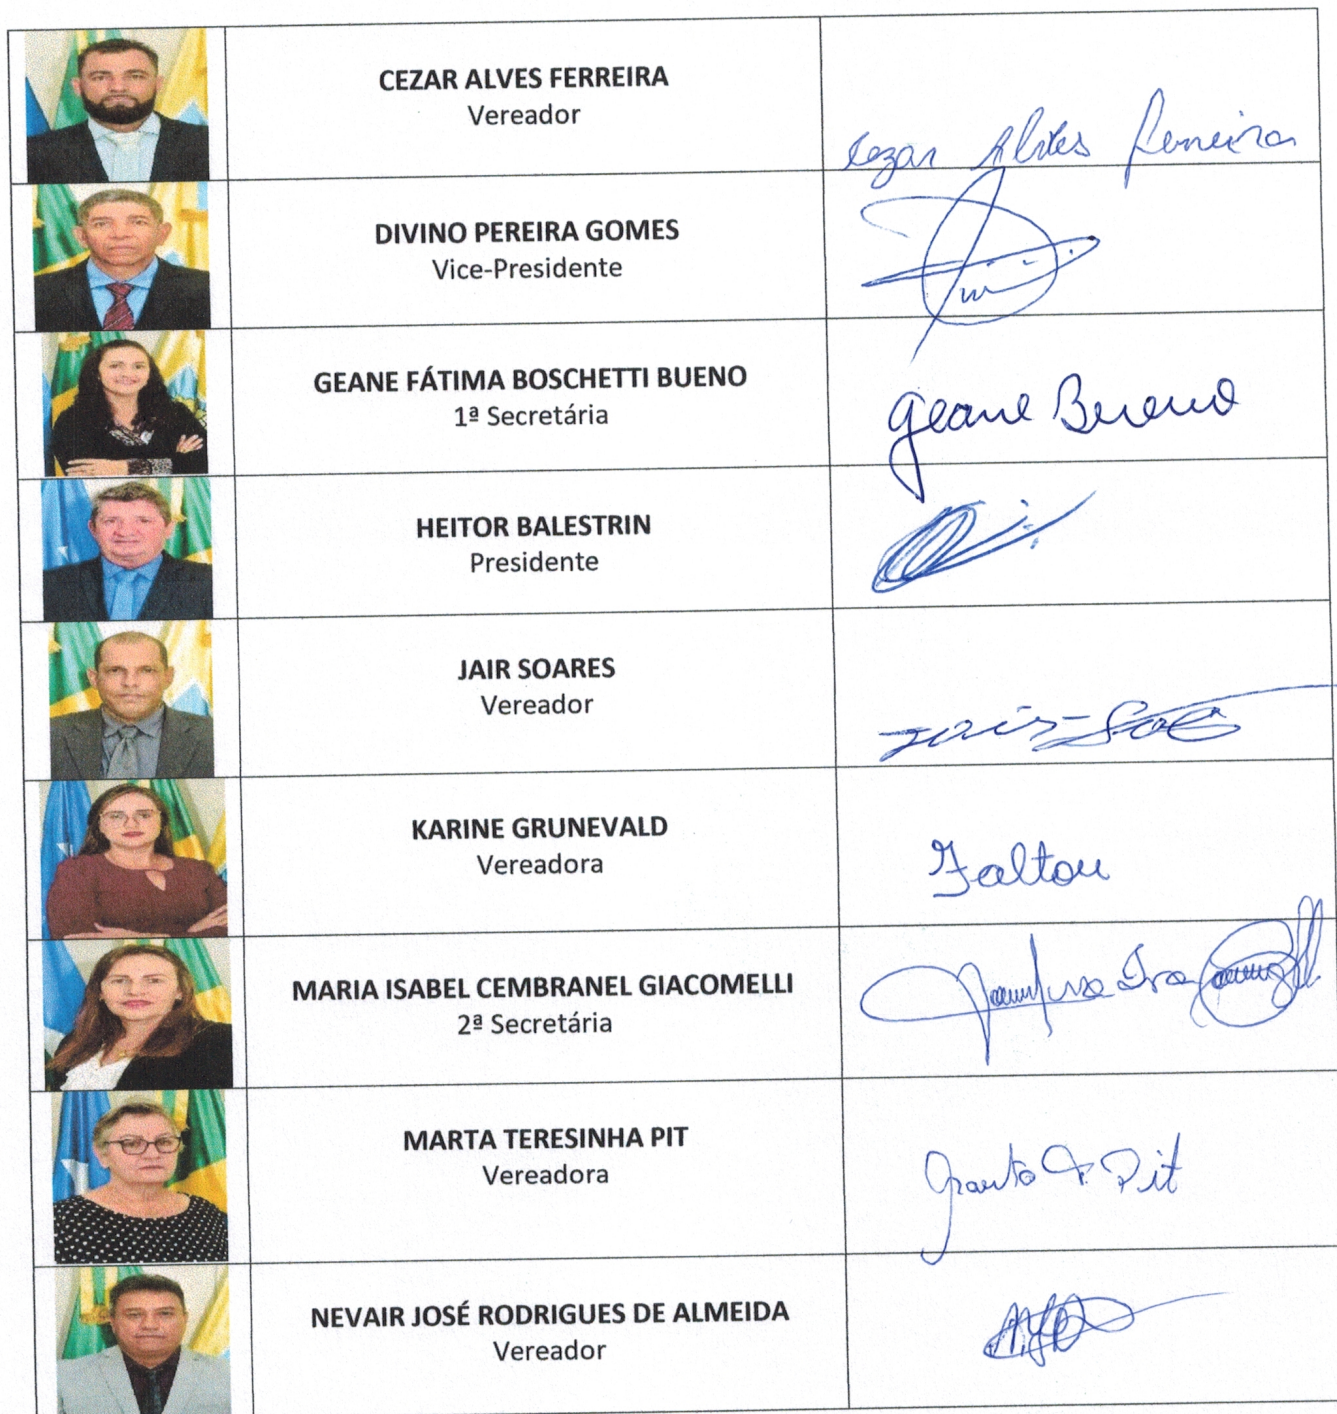 CEZAR ALVES FERREIRA
Vereador
Cezar Alves Ferreira
DIVINO PEREIRA GOMES
Vice-Presidente
GEANE FÁTIMA BOSCHETTI BUENO
1ª Secretária
Geane Bueno
HEITOR BALESTRIN
Presidente
JAIR SOARES
Vereador
Jair
KARINE GRUNEVALD
Vereadora
Faltou
MARIA ISABEL CEMBRANEL GIACOMELLI
2ª Secretária
MARTA TERESINHA PIT
Vereadora
Marta T. Pit
NEVAIR JOSÉ RODRIGUES DE ALMEIDA
Vereador